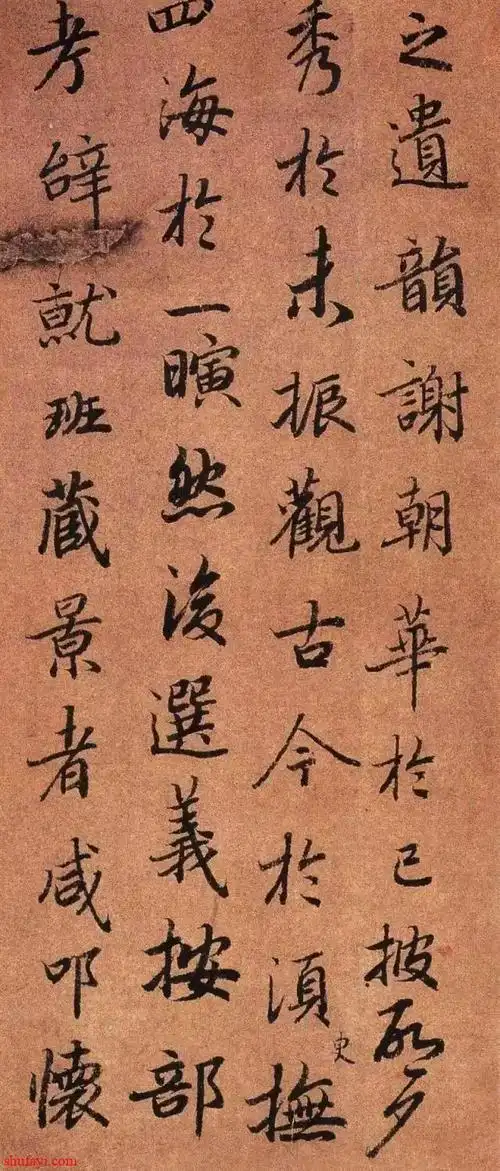 之遺韻謝朝華於已披啓夕
秀於未振觀古今於湏臾撫
四海於一瞚然後選義按部
考辝就班蔵景者咸叩懷
shufayi.com